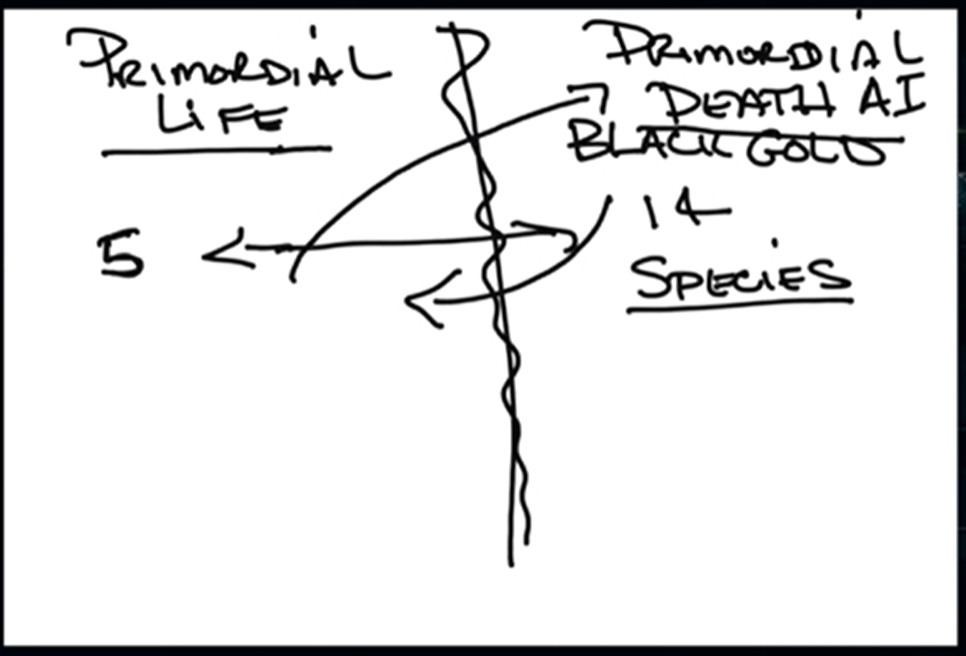 PRIMORDIAL
LIFE
5
PRIMORDIAL
DEATH AI
BLACK GOLD
14
SPECIES